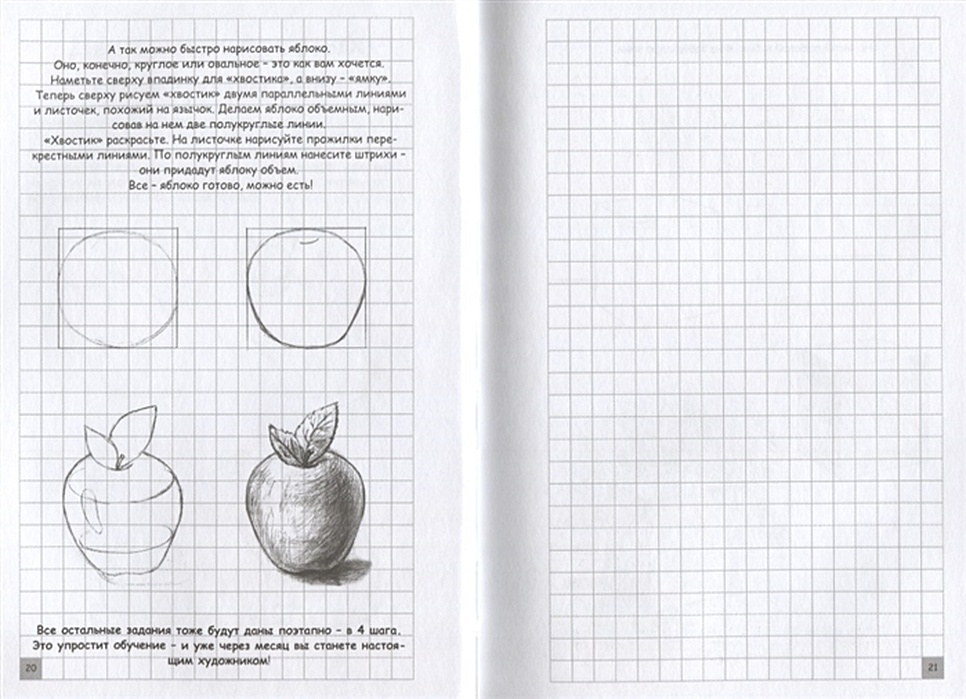 А так можно быстро нарисовать яблоко.
Оно, конечно, круглое или овальное – это как вам хочется.
Наметьте сверху впадинку для «хвостика», а внизу – «ямку».
Теперь сверху рисуем «хвостик» двумя параллельными линиями
и листочек, похожий на язычок. Делаем яблоко объемным, нари-
совав на нем две полукруглые линии.
«Хвостик» раскрасьте. На листочке нарисуйте прожилки пере-
крестными линиями. По полукруглым линиям нанесите штрихи –
они придадут яблоку объем.
Все – яблоко готово, можно есть!
Все остальные задания тоже будут даны поэтапно – в 4 шага.
Это упростит обучение – и уже через месяц вы станете настоя-
щим художником!
20
21